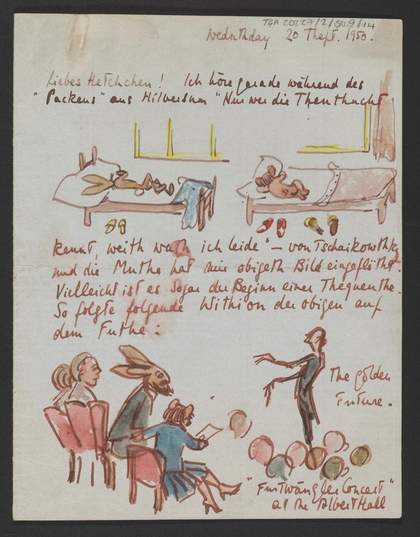 TGA 20129/2/2/8/14
Wednthday 20 Thept. 1950.
Liebes Ketchchen! Ich höre gerade während des
"Packens" aus Hilversum "Nur wer die Thenthucht
kennt, weith wath ich leide" – von Tschaikowthky
und die Muthe hat mir obigeth Bild eingeflütht.
Vielleicht ist es sogar der Beginn einer Thequenthe.
So folgte folgende Withion der obigen auf
dem Futhe:
The golden
Future.
"Furtwängler Concert"
at the Albert Hall